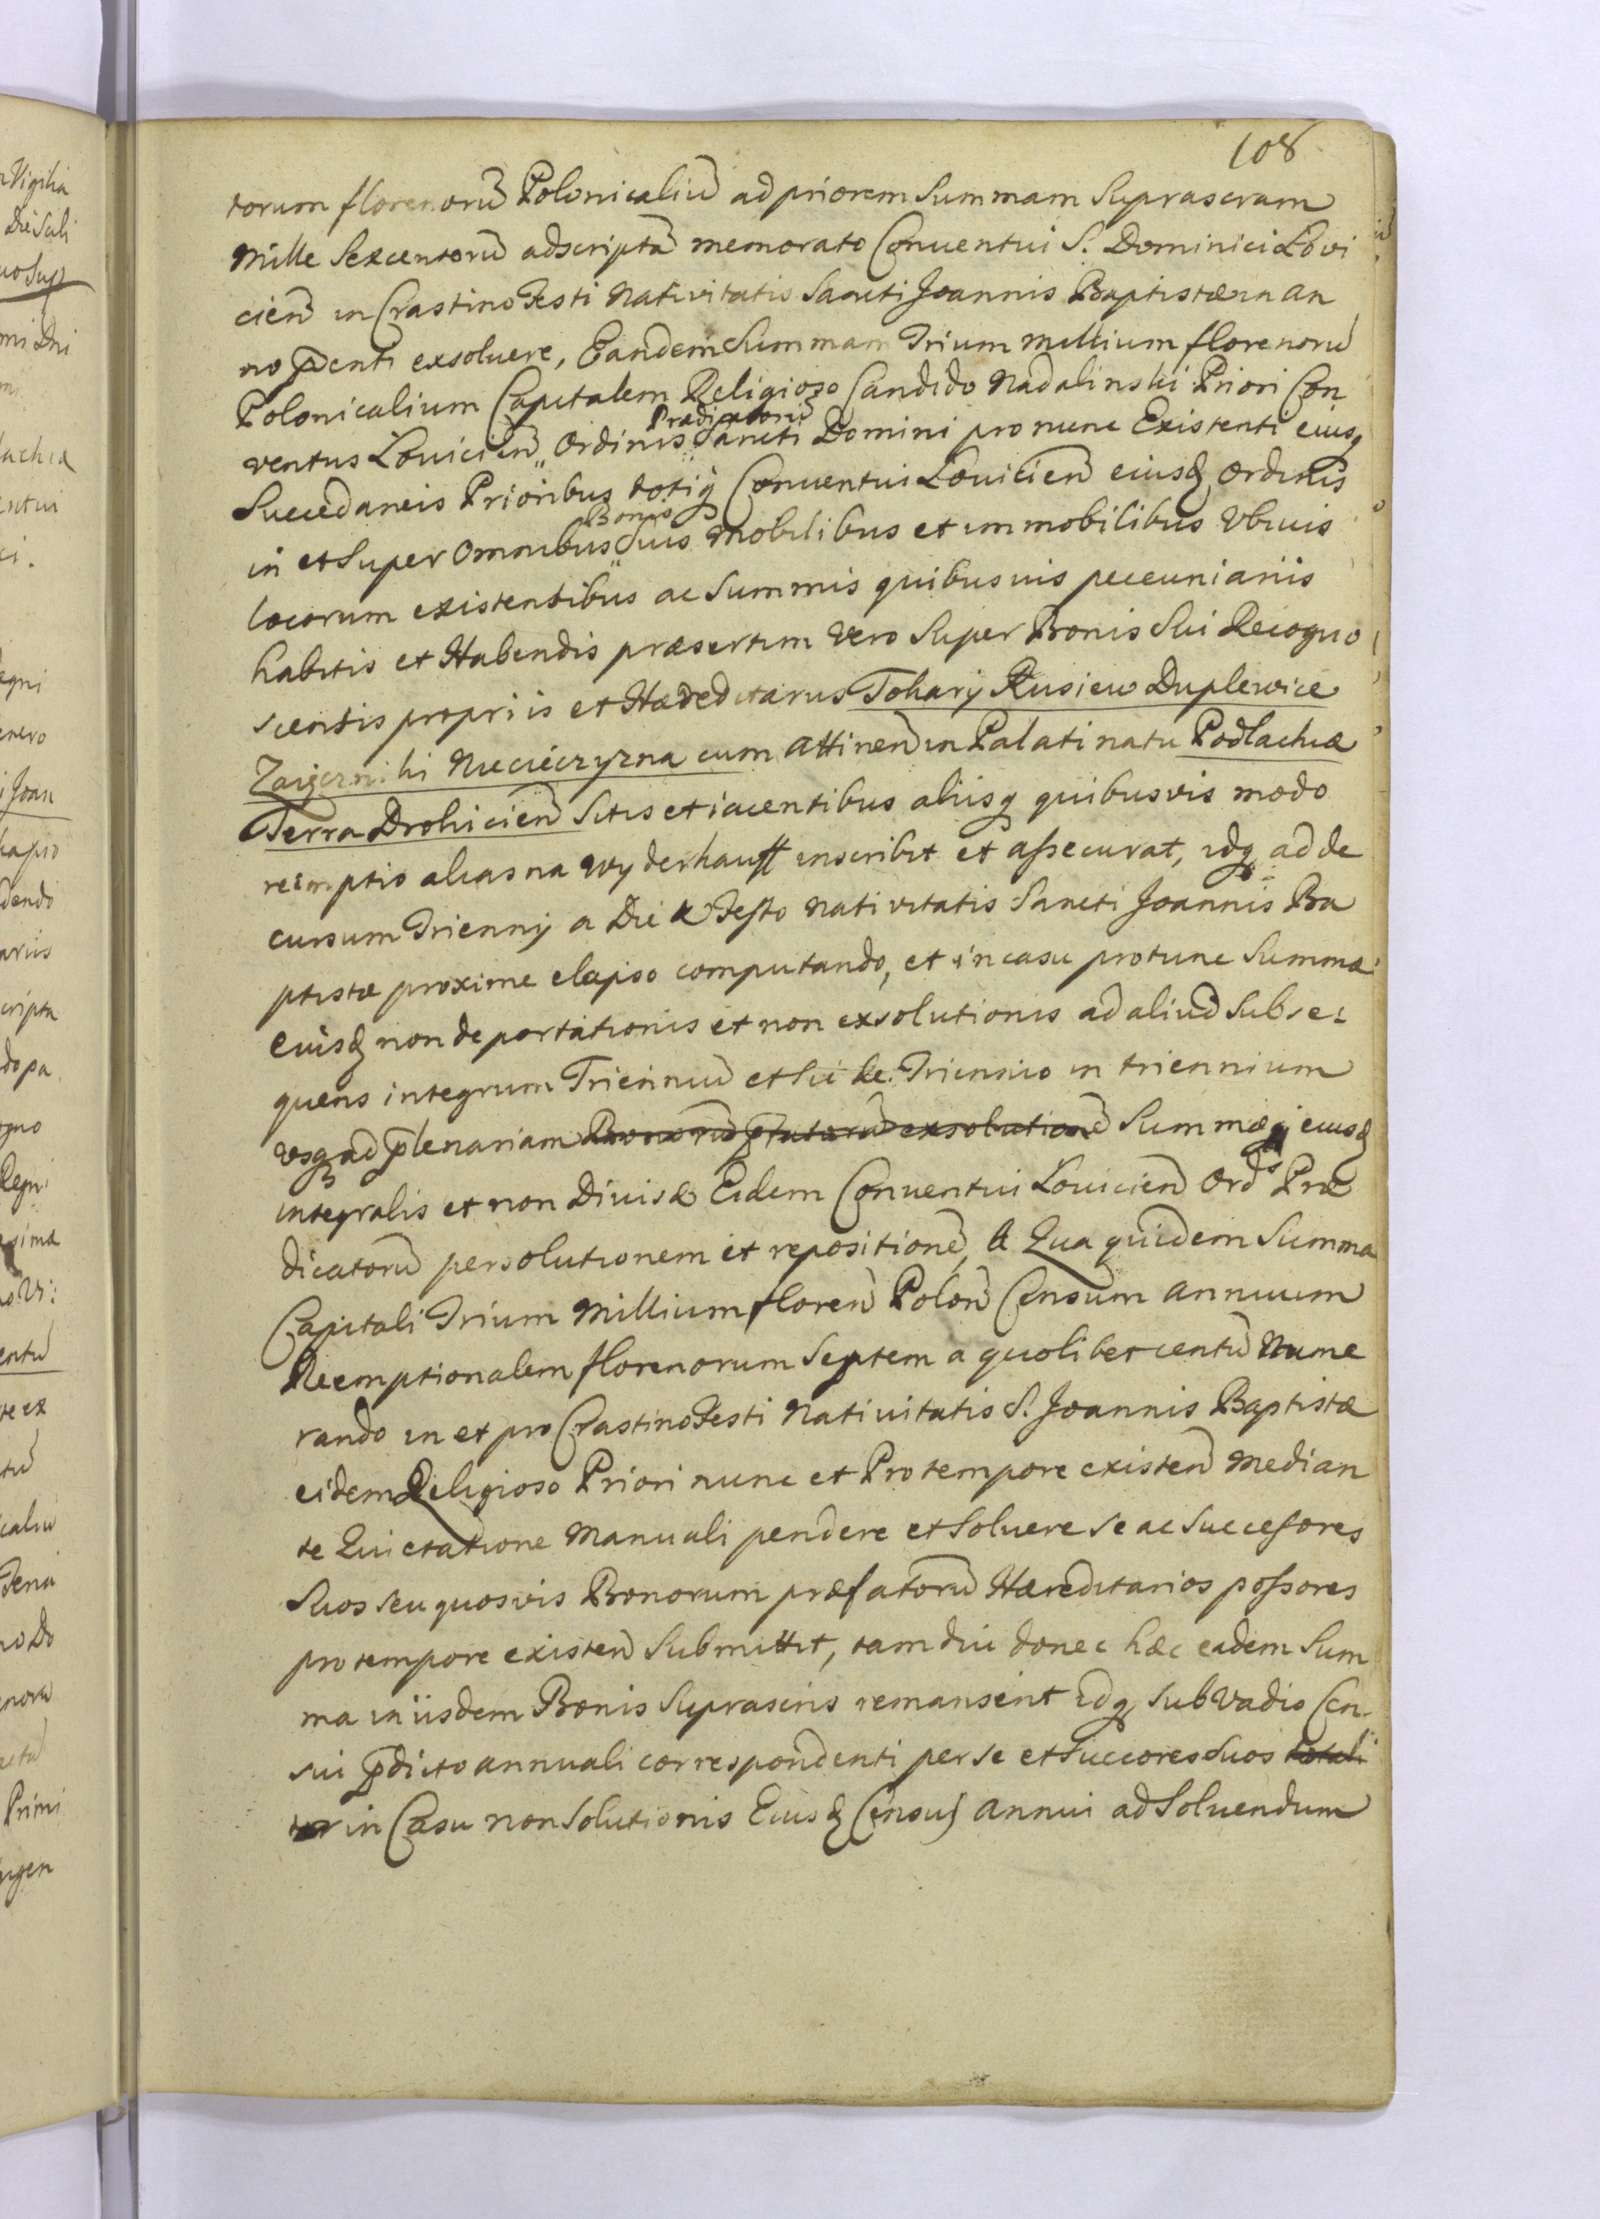 108
torum florenorū Polonicaliū ad priorem Summam Suprascram
Mille Sexcentorū adscriptā memorato Conuentui S. Dominici Lovi
cień in Crastino Festi Nativitatis Sancti Joannis Baptistæ in an
no p̄senti exsoluere, Eandem Summam Trium Millium florenorū
Polonicalium Capitalem Religioso Candido Nadalinski Priori Con
Prædicatorū
ventus Louicień Ordinis Sancti Domini pro nunc Existenti eiusq
Succedaneis Prioribus totiq Conuentui Louicień eiusd Ordinis
Bonis
in et Super Omnibus Suis Mobilibus et immobilibus Vbiuis
locorum existentibus ac Summis quibusuis pecuniariis
habitis et Habendis præsertim Vero Super Bonis Sui Recogno
scentis propriis et Hæreditariis Tokary Rusiew Duplewice
Nieciecryzna cum Attineń in Palatinatu Podlachiæ
Terra Drohicień Sitis et iacentibus aliisq quibusvis modo
reemptio alias na Wyderkauff inscribit et assecurat, idq ad de
cursum Trienny a Die Festo Nativitatis Sancti Joannis Ba
ptistæ proxime elapso computando, et in casu protunc Summæ
Eiusd non deportationis et non exsolutionis ad aliud Subse-
quens integrum Trienniū et sic de Triennio in triennium
vsq ad plenariam Bonorū exsolutionē Summæq eiusd
integralis et non Diuisæ Eidem Conuentui Louicień Ord̄s Præ
dicatorū persolutionem et repositionē, A Qua quidem Summa
Capitali Trium Millium floreń Poloń Censum Annuum
Reemptionalem florenorum Septem a quolibet centū Nume
rando in et pro Crastino Festi Nativitatis S. Joannis Baptistæ
eidem Religioso Priori nunc et Pro tempore existeń Median
te Quictatione Manuali pendere et Soluere Se ac Successores
Suos seu quosvis Bonorum præfatorū Hæreditarios possores
pro tempore existeń Submittit, tam diu donec hæc eadem Sum
ma in iisdem Bonis Suprascris remanserit idq Sub Vadio Cen-
sui p̄dicto annuali correspondenti per se et Succores Suos totali
ter in Casu non Solutionis Eiusd Census Annui ad Soluendum